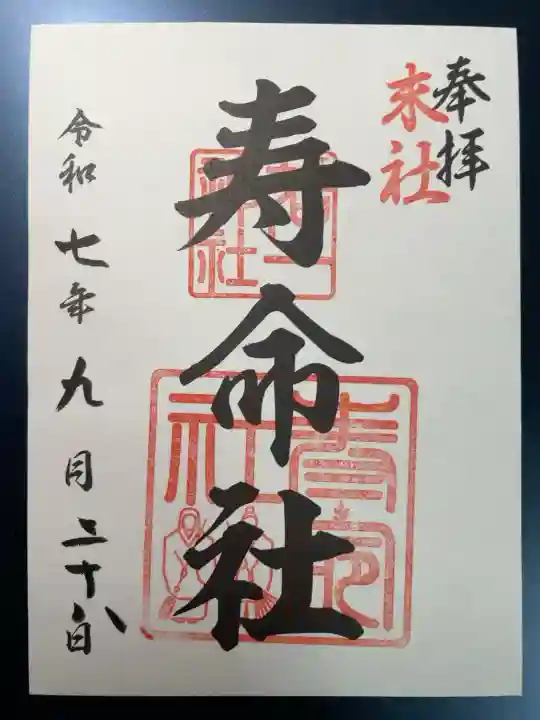 奉拝
末社
寿命社
寿命社
令和七年九月二十八日